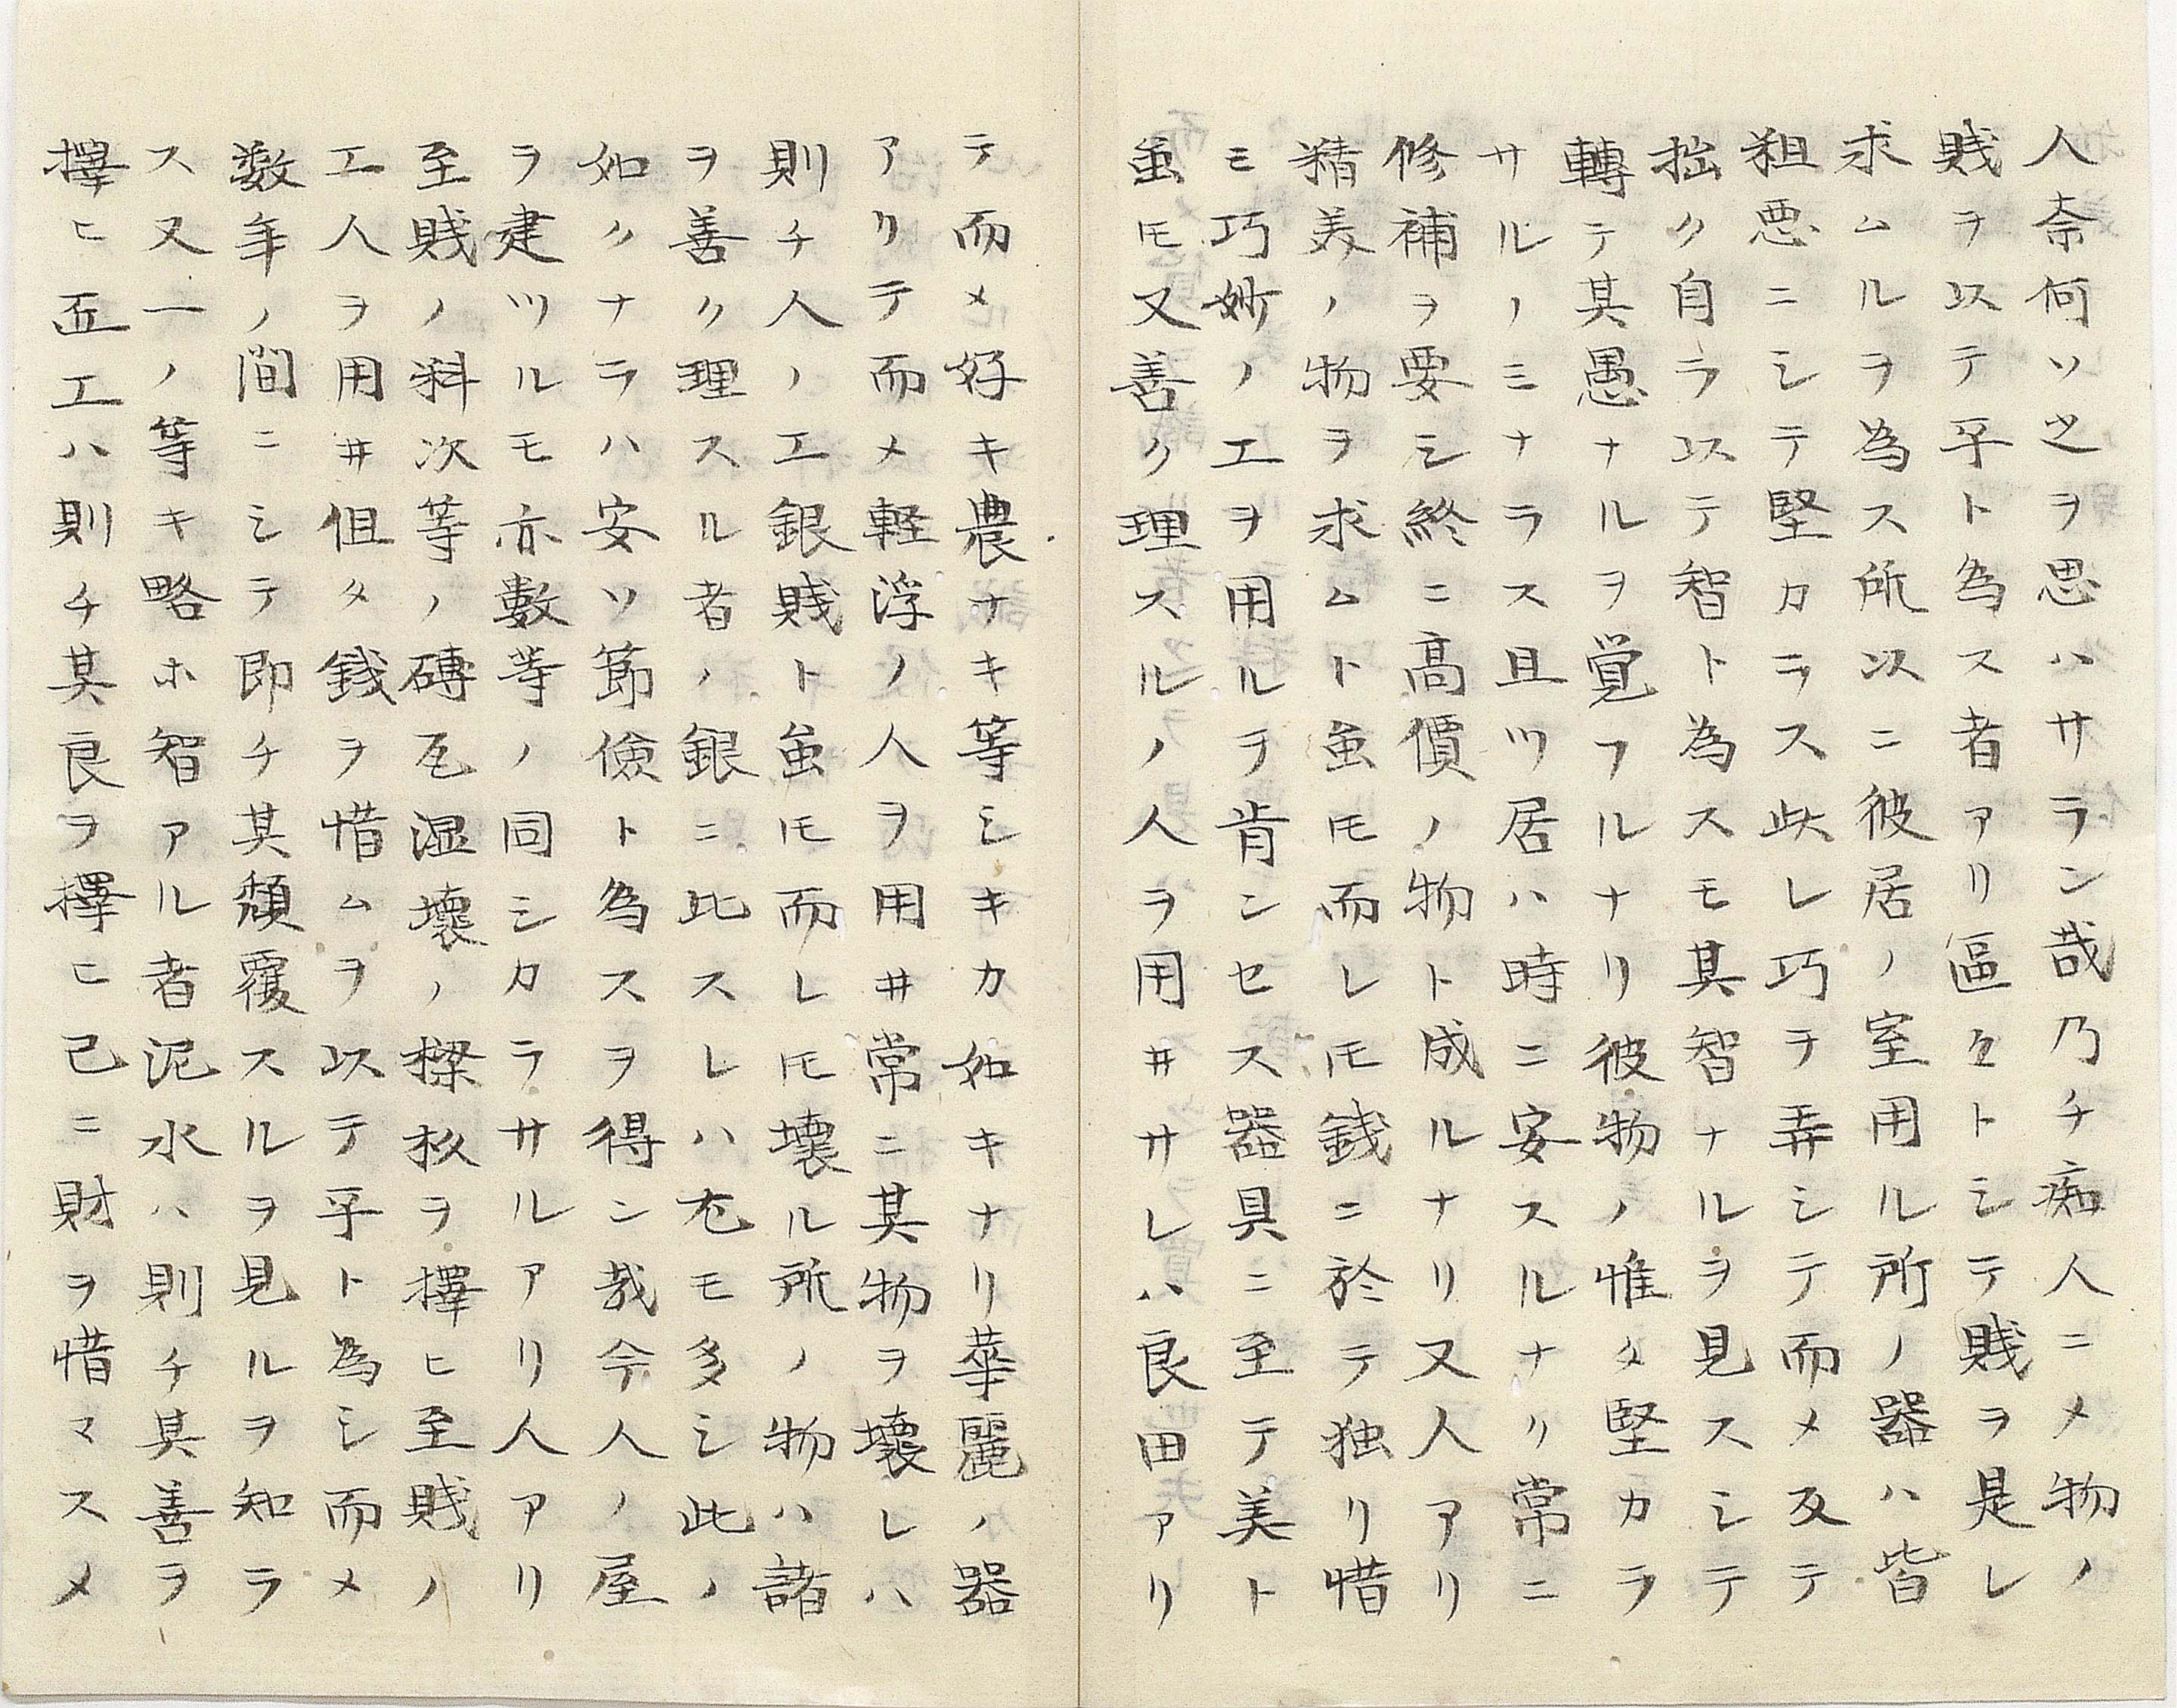 人奈何ソ之ヲ思ハサラン哉乃チ痴人ニメ物ノ
賎ヲ以テ平ト為ス者アリ區々トシテ賎ヲ是レ
求ムルヲ為ス所以ニ彼居ノ室用ル所ノ器ハ皆
粗悪ニシテ堅カラス此レ巧ヲ弄シテ而メ反テ
拙ク自ラ以テ智ト為スモ其智ナルヲ見スシテ
轉テ其愚ナルヲ覚フルナリ彼物ノ惟タ堅カラ
サルノミナラス且ツ居ハ時ニ安スルナリ常ニ
修補ヲ要シ終ニ高價ノ物ト成ルナリ又人アリ
精美ノ物ヲ求ムト虽𪜈而レ𪜈銭ニ於テ独リ惜
ミ巧妙ノ工ヲ用ルヲ肯ンセス器具ニ至テ美ト
虽𪜈又善ク理スルノ人ヲ用井サレハ良田アリ
テ而メ好キ農ナキ等シキカ如キナリ華麗ノ器
アリテ而メ軽浮ノ人ヲ用井常ニ其物ヲ壊レハ
則チ人ノ工銀賎ト虽𪜈而レ𪜈壊ル所ノ物ハ諸
ヲ善ク理スル者ノ銀ニ此スレハ尤モ多シ此ノ
如クナラハ安ソ節儉ト為スヲ得ン哉今人ノ屋
ヲ建ツルモ亦數等ノ同シカラサルアリ人アリ
至賎ノ料次等ノ磚瓦湿壊ノ樑杦ヲ擇ヒ至賎ノ
工人ヲ用井但タ銭ヲ惜ムヲ以テ平ト為シ而メ
数年ノ間ニシテ即チ其頽覆スルヲ見ルヲ知ラ
ス又一ノ等キ略ホ智アル者泥水ハ則チ其善ヲ
擇ヒ㔻工ハ則チ其良ヲ擇ヒ己ニ財ヲ惜マスメ